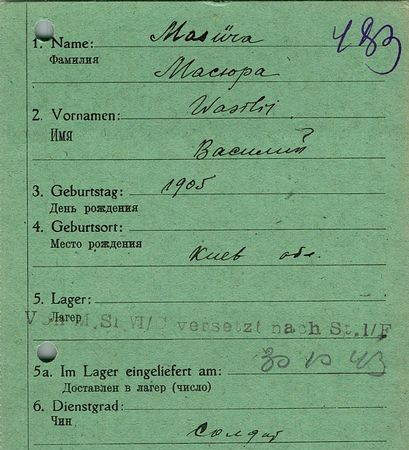 1. Name: Masüra
483
Фамилия
Масюра
2. Vornamen: Wasilij
Имя
Василий
3. Geburtstag: 1905
День рождения
4. Geburtsort:
Место рождения
Киев обл.
5. Lager:
Лагерь
versetzt nach St. I/F
5a. Im Lager eingeliefert am: 30 10 43
Доставлен в лагерь (число)
6. Dienstgrad:
Чин
солдат